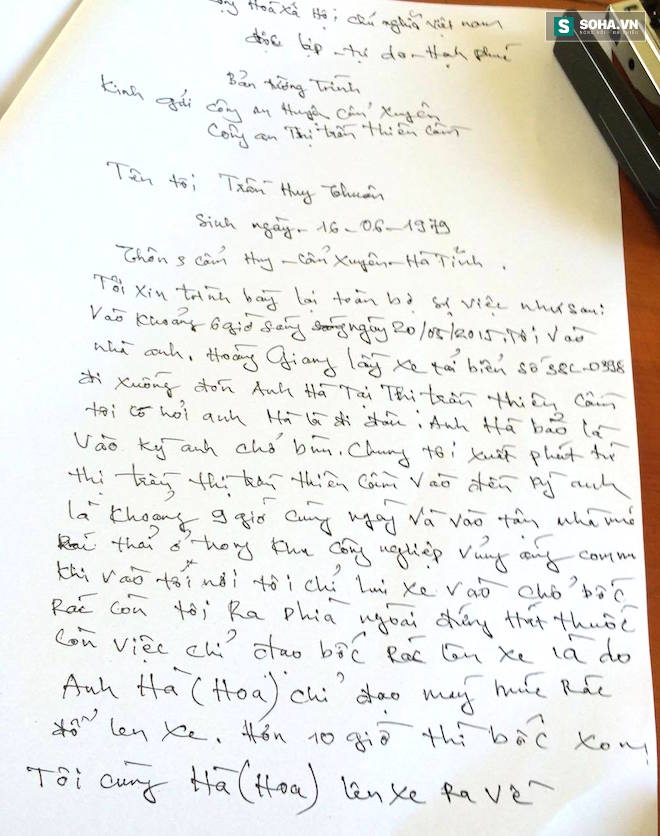 SOHA.VN
Cộng Hoà Xã Hội chủ nghĩa Việt nam
độc lập - tự do - Hạnh phúc
Bản tường trình
Kính gửi công an Huyện Cẩm Xuyên
Công an Thị trấn Thiên Cầm
Tên tôi Trần Huy Thuân
Sinh ngày - 16-06-1979
Thôn 5 cẩm Huy - cẩm xuyên - Hà Tĩnh.
Tôi xin trình bày lại toàn bộ sự việc như sau:
Vào khoảng 6 giờ sáng ngày 20/05/2015. Tôi vào
nhà anh. Hoàng Giang lấy xe tải biển số 0398
đi xuống đón Anh Hà Tại Thị trấn thiên cầm
tôi có hỏi anh Hà là đi đâu: Anh Hà bảo là
Vào kỳ anh chở bùn. Chung tôi xuất phát từ
thị trấn thị trấn thiên cầm vào đến kỳ anh
là khoảng 9 giờ cùng ngày và vào tận nhà
Rác thải ở trong khu công nghiệp vũng áng
khi vào tới nơi tôi chỉ lui xe vào chỗ bốc
Rác còn tôi Ra phía ngoài đứng Hút thuốc
Còn việc chỉ đạo bốc Rác lên xe là do
Anh Hà (Hoa) chỉ đạo máy múc Rác
đổ lên xe. Hơn 10 giờ thì bốc xong
Tôi cùng Hà (Hoa) lên xe Ra về